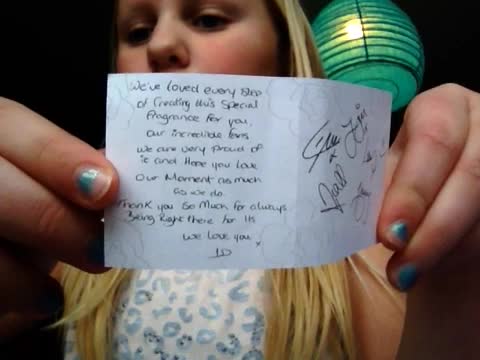 We've loved every step
of Creating this Special
Fragrance for you,
our incredible fans
we are very proud of
it and Hope you love
Our Moment as much
as we do.
Thank you so Much for always
Being Right there for us
we love you x
1D